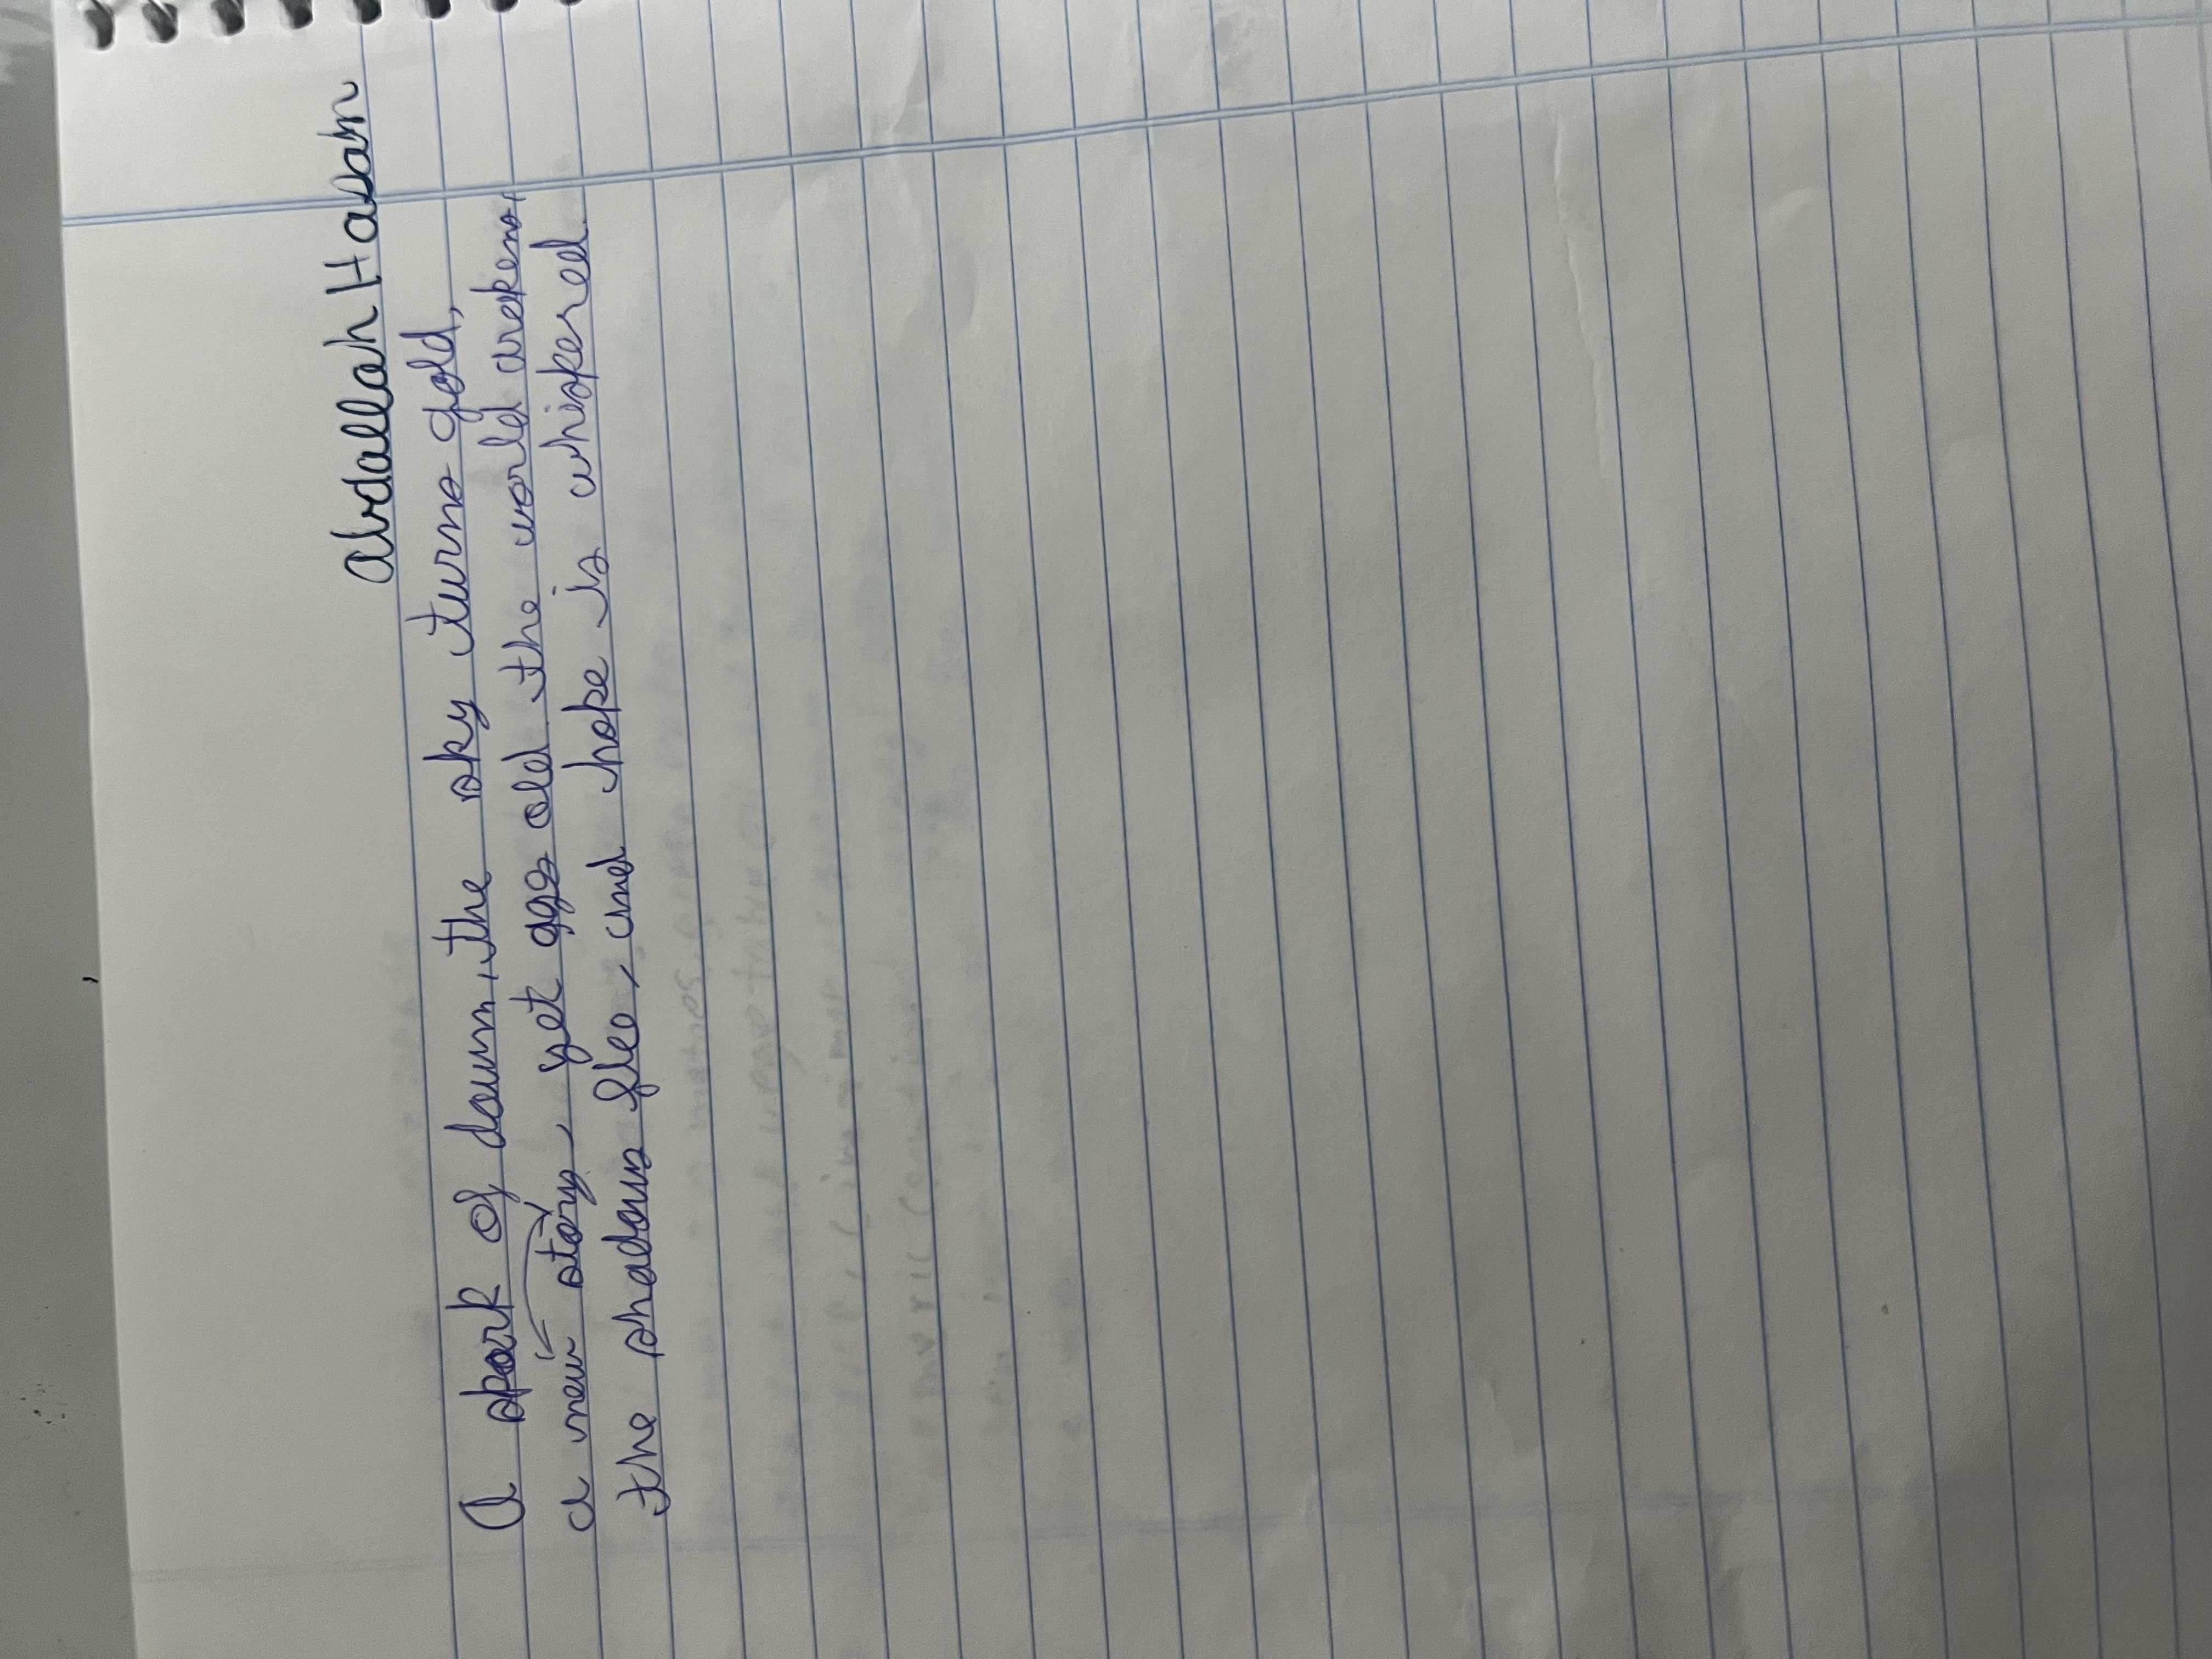 Abdallah Hasan
A spark of dawn, the sky turns gold,
a new story, yet ages old the world awakens,
the shadows flee, and hope is whiskered.